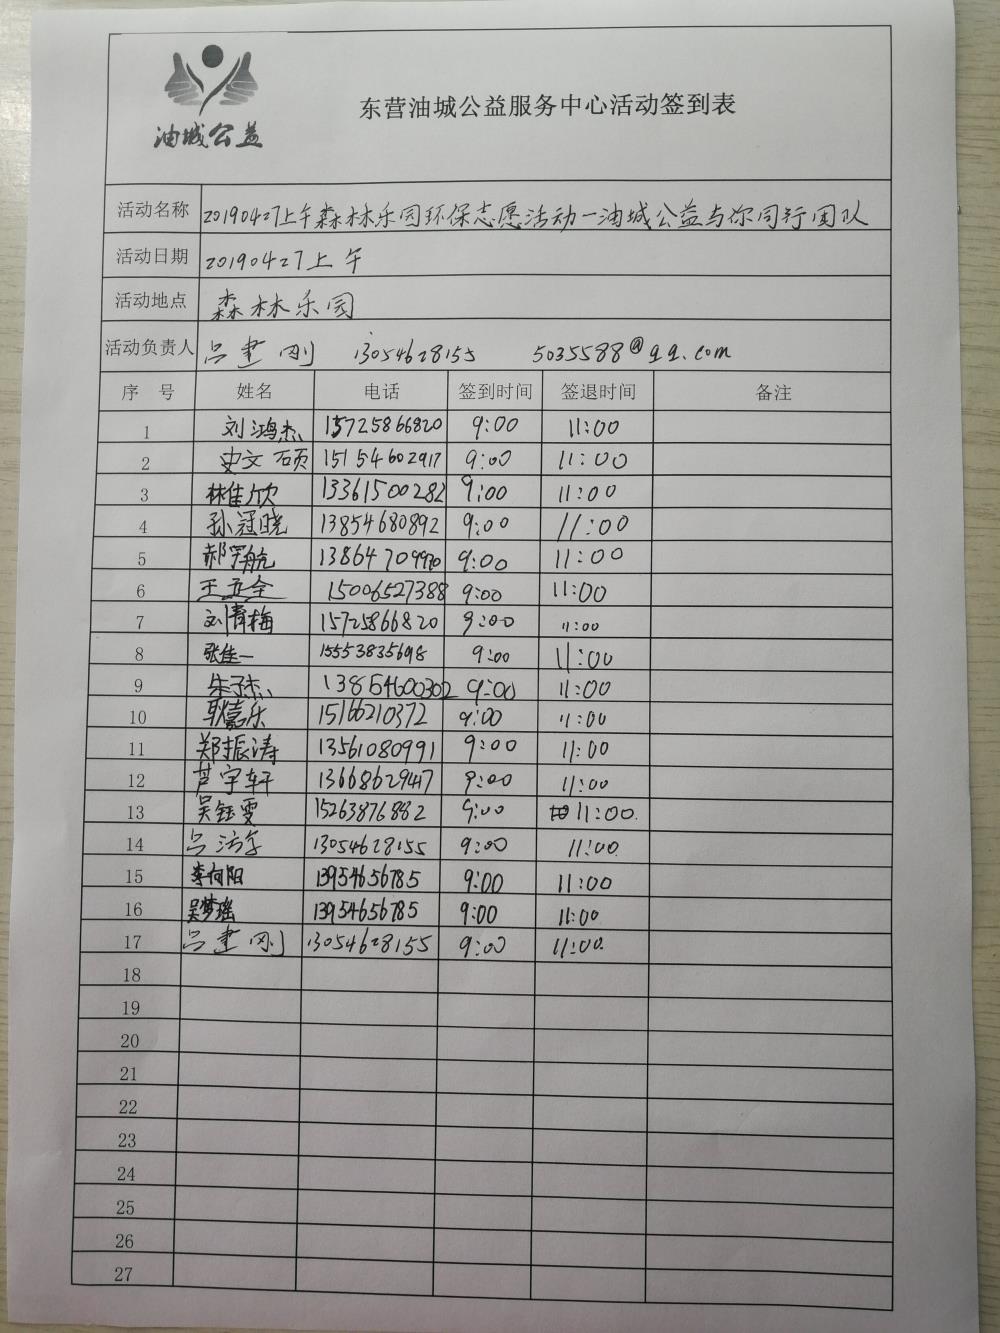 油城公益
东营油城公益服务中心活动签到表
活动名称 20190427上午森林乐园环保志愿活动—油城公益与你同行团队
活动日期 20190427上午
活动地点 森林乐园
活动负责人 吕建刚 13054628155 5035588@qq.com
序号 姓名 电话 签到时间 签退时间 备注
1 刘鸿杰 15725866820 9:00 11:00
2 史文硕 15154602917 9:00 11:00
3 林佳欣 13361500282 9:00 11:00
4 孙冠晓 13854680892 9:00 11:00
5 郝 航 9:00 11:00
6 王五全 15006527388 9:00 11:00
7 刘青梅 15725866820 9:00 11:00
8 张佳一 15553835698 9:00 11:00
9 朱子杰 13854600302 9:00 11:00
10 耿嘉乐 15166210372 9:00 11:00
11 郑振涛 13561080991 9:00 11:00
12 芦宇轩 13668629447 9:00 11:00
13 吴钰雯 15263876882 9:00 11:00.
14 吕 13054628155 9:00 11:00.
15 李向阳 13954656785 9:00 11:00
16 吴梦瑶 13954656785 9:00 11:00
17 吕建刚 13054628155 9:00 11:00.
18
19
20
21
22
23
24
25
26
27